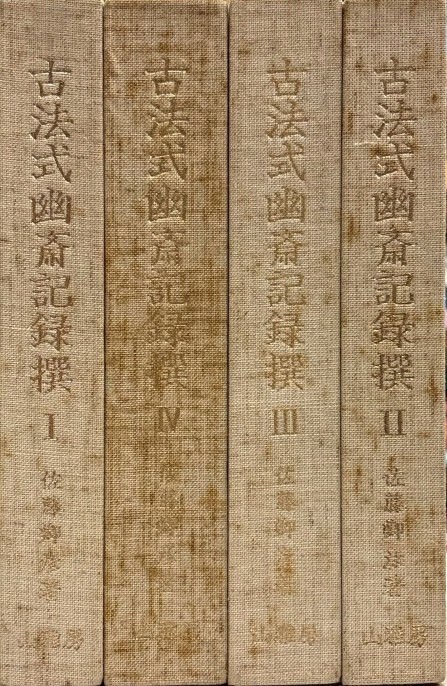 古法式幽斎記録撰 I
佐藤卿彦著
山雅房
古法式幽斎記録撰 IV
古法式幽斎記録撰 III
佐藤卿彦著
山雅房
古法式幽斎記録撰 II
佐藤卿彦著
山雅房